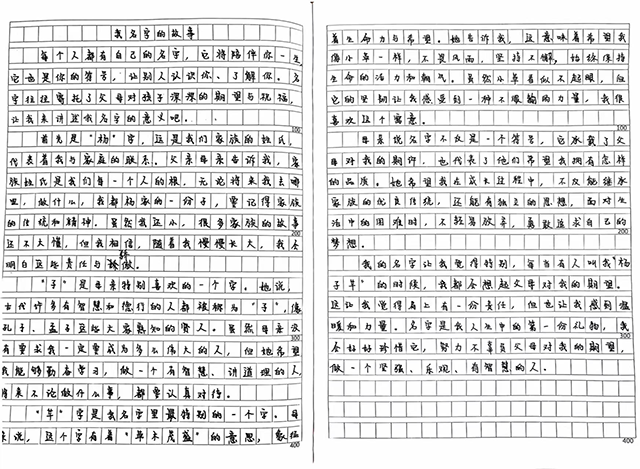 我名字的故事
每个人都有自己的名字,它将陪伴你一生
它也是你的符号,让别人认识你、了解你。名
字往往寄托了父母对孩子深深的期望与祝福,
让我来讲述我名字的意义吧。
100
首先是“杨”字,这是我们家族的姓氏,
代表着我与家庭的联系。父亲母亲告诉我,家
族姓氏是我们每一个人的根,无论将来我去哪
里,做什么,我都杨家的一份子,要记得家族
的传统和精神。虽然我还小,很多家族的故事
200
还不大懂,但我相信,随着我慢慢长大,我会
明白这些责任与骄傲。
“子”是母亲特别喜欢的一个字。她说,
古代许多有智慧和德行的人都被称为“子”,像
孔子、孟子这些大家熟知的贤人。虽然母亲没
300
有要求我一定要成为多么伟大的人,但她希望
我能够勤奋学习,做一个有智慧、讲道理的人
将来不论做什么事,都要认真对待。
“草”字是我名字里最特别的一个字。母
亲说,这个字有着“草木茂盛”的意思,象征
400
着生命力与希望。她告诉我,这意味着希望我
像小草一样,不畏风雨,坚持不懈,始终保持
生命的活力和朝气。虽然小草看似不起眼,但
它的坚韧让我感受到一种不服输的力量,我很
喜欢这个寓意。
100
母亲说名字不仅是一个符号,它承载了父
母对我的期待,也代表了他们希望我拥有怎样
的品质。她希望我在成长过程中,不仅能继承
家族的优良传统,还能有独立的思想,面对生
活中的困难时,不轻易放弃,勇敢追求自己的
200
梦想。
我的名字让我觉得特别,每当有人叫我“杨
子草”的时候,我都会想起父母对我的期望。
这让我觉得肩上有一份责任,但也让我感到温
暖和力量。名字是我人生中的第一份礼物,我
300
会好好珍惜它,努力不辜负父母对我的期望,
做一个坚强、乐观、有智慧的人。
400